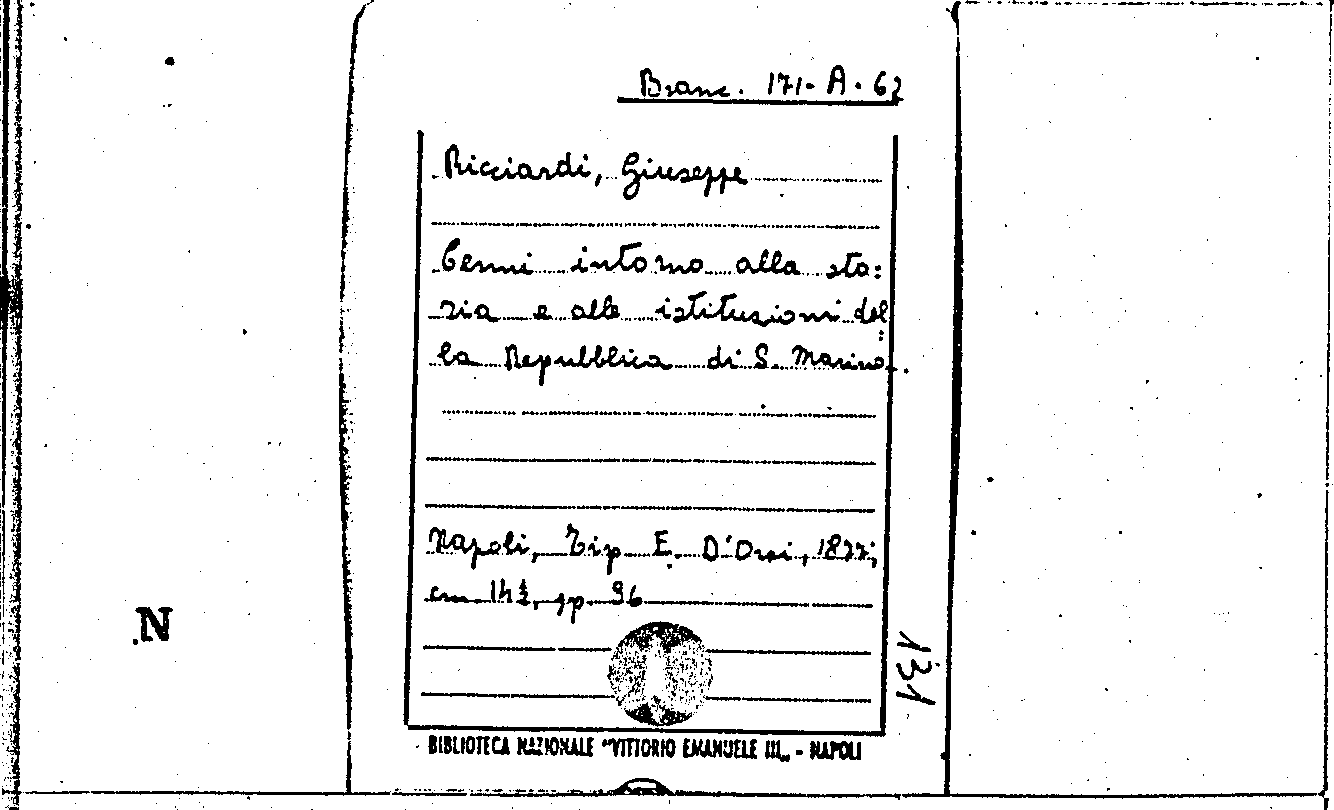 Branc. 171-A-62
Ricciardi, Giuseppe
Cenni intorno alla sto:
ria e alle istituzioni del:
la Repubblica di S. Marino.
Napoli, Tip. E. D'Orsi, 1877;
cm. 14½, pp. 96
N
131
BIBLIOTECA NAZIONALE "VITTORIO EMANUELE III„ - NAPOLI